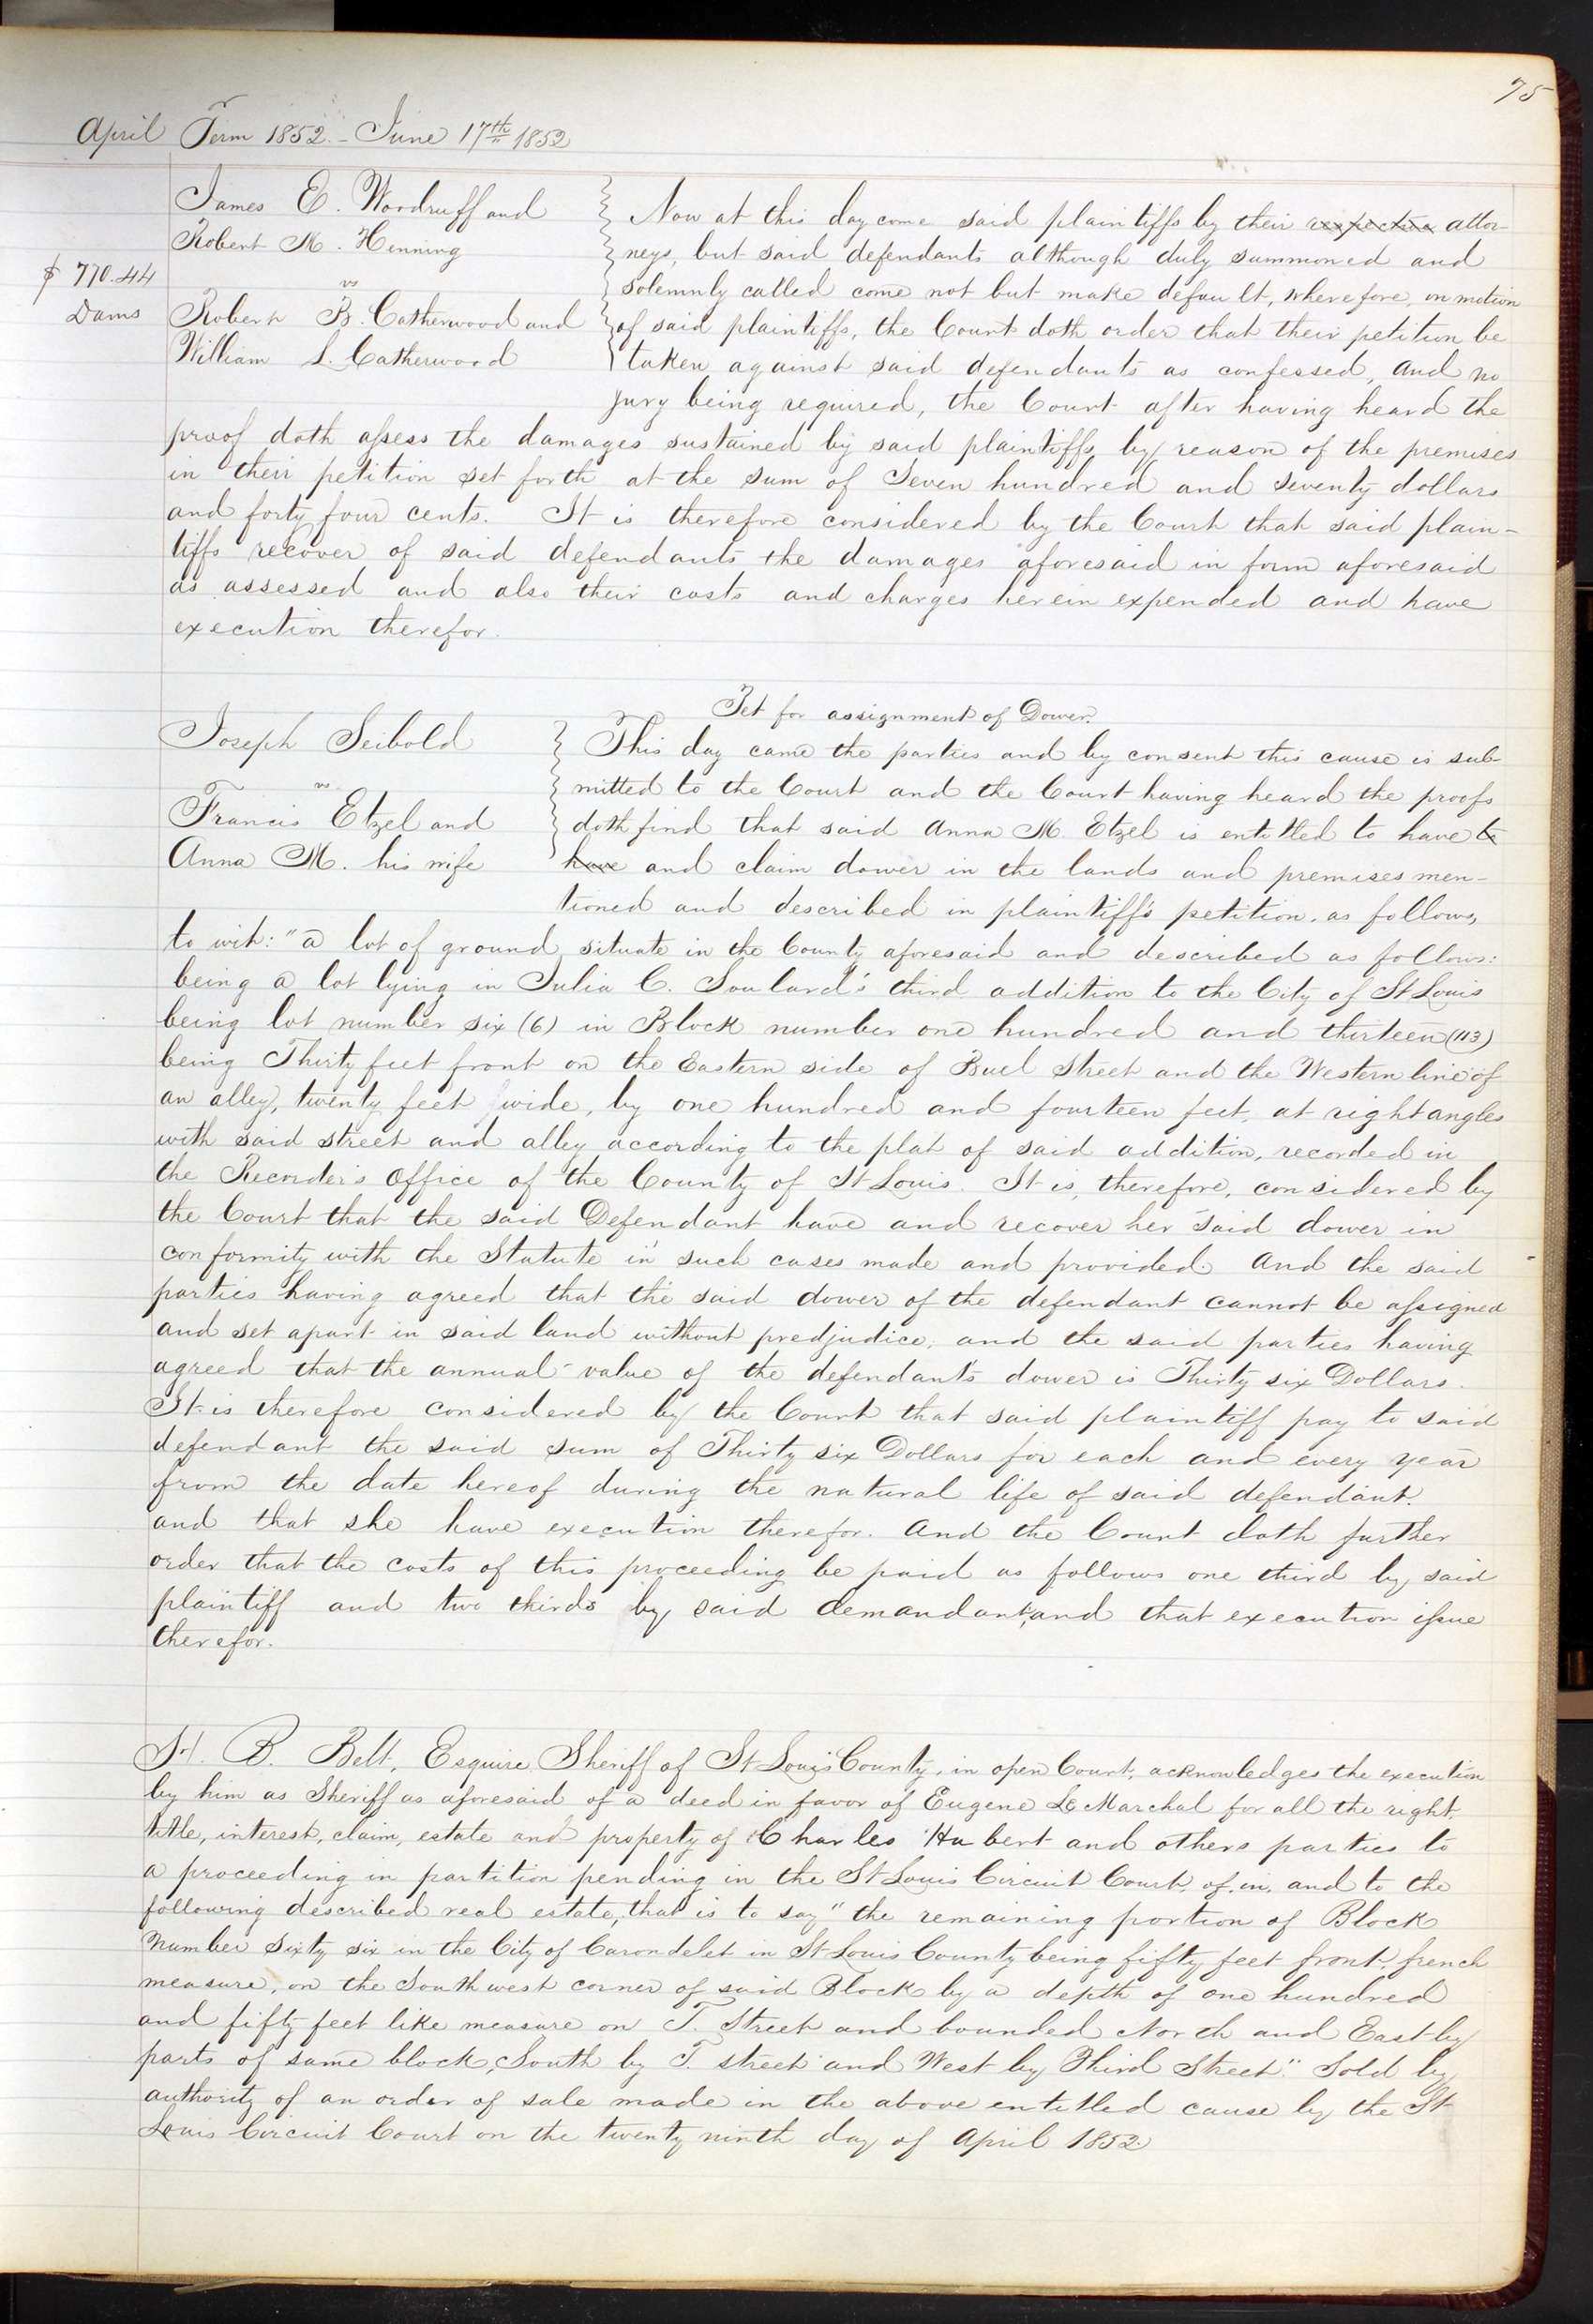 75
April Term 1852 - June 17th 1852
James E. Woodruff and
Robert M. Henning
vs
Robert B. Catherwood and
William L. Catherwood
$ 770.44
Dams
Now at this day come said plaintiffs by their respective attor-
neys, but said defendants although duly summoned and
solemnly called come not but make default, wherefore, on motion
of said plaintiffs, the Court doth order that their petition be
taken against said defendants as confessed, and no
jury being required, the Court after having heard the
proof doth assess the damages sustained by said plaintiffs, by reason of the premises
in their petition set forth at the sum of Seven hundred and seventy dollars
and forty four cents. It is therefore considered by the Court that said plain-
tiffs recover of said defendants the damages aforesaid in form aforesaid
as assessed and also their costs and charges herein expended and have
execution therefor.
Pet for assignment of Dower.
Joseph Seibold
vs
Francis Etzel and
Anna M. his wife
This day came the parties and by consent this cause is sub-
mitted to the Court and the Court having heard the proofs
doth find that said Anna M. Etzel is entitled to have to
have and claim dower in the lands and premises men-
tioned and described in plaintiff's petition, as follows,
to wit: "a lot of ground situate in the County aforesaid and described as follows:
being a lot lying in Julia C. Soulard's third addition to the City of St Louis
being lot number six (6) in Block number one hundred and thirteen (113)
being Thirty feet front on the Eastern side of Buel Street and the Western line of
an alley, twenty feet wide, by one hundred and fourteen feet, at right angles
with said street and alley according to the plat of said addition, recorded in
the Recorder's Office of the County of St Louis. It is, therefore, considered by
the Court that the said Defendant have and recover her said dower in
conformity with the Statute in such cases made and provided. And the said
parties having agreed that the said dower of the defendant cannot be assigned
and set apart in said land without predjudice, and the said parties having
agreed that the annual value of the defendant's dower is Thirty six Dollars.
It is therefore considered by the Court that said plaintiff pay to said
defendant the said sum of Thirty six Dollars for each and every year
from the date hereof during the natural life of said defendant.
and that she have execution therefor. And the Court doth further
order that the costs of this proceeding be paid as follows one third by said
plaintiff and two thirds by said demandant, and that execution issue
therefor.
H. B. Belt, Esquire, Sheriff of St Louis County, in open Court, acknowledges the execution
by him as Sheriff as aforesaid of a deed in favor of Eugene Le Marchal for all the right,
title, interest, claim, estate and property of Charles Hubert and others parties to
a proceeding in partition pending in the St Louis Circuit Court, of, in, and to the
following described real estate, that is to say "the remaining portion of Block
Number Sixty six in the City of Carondelet in St Louis County being fifty feet front, french
measure, on the South west corner of said Block by a depth of one hundred
and fifty feet like measure on T. Street and bounded North and East by
parts of same block, South by T. street and West by Third Street." Sold by
authority of an order of sale made in the above entitled cause by the St
Louis Circuit Court on the twenty ninth day of April 1852.